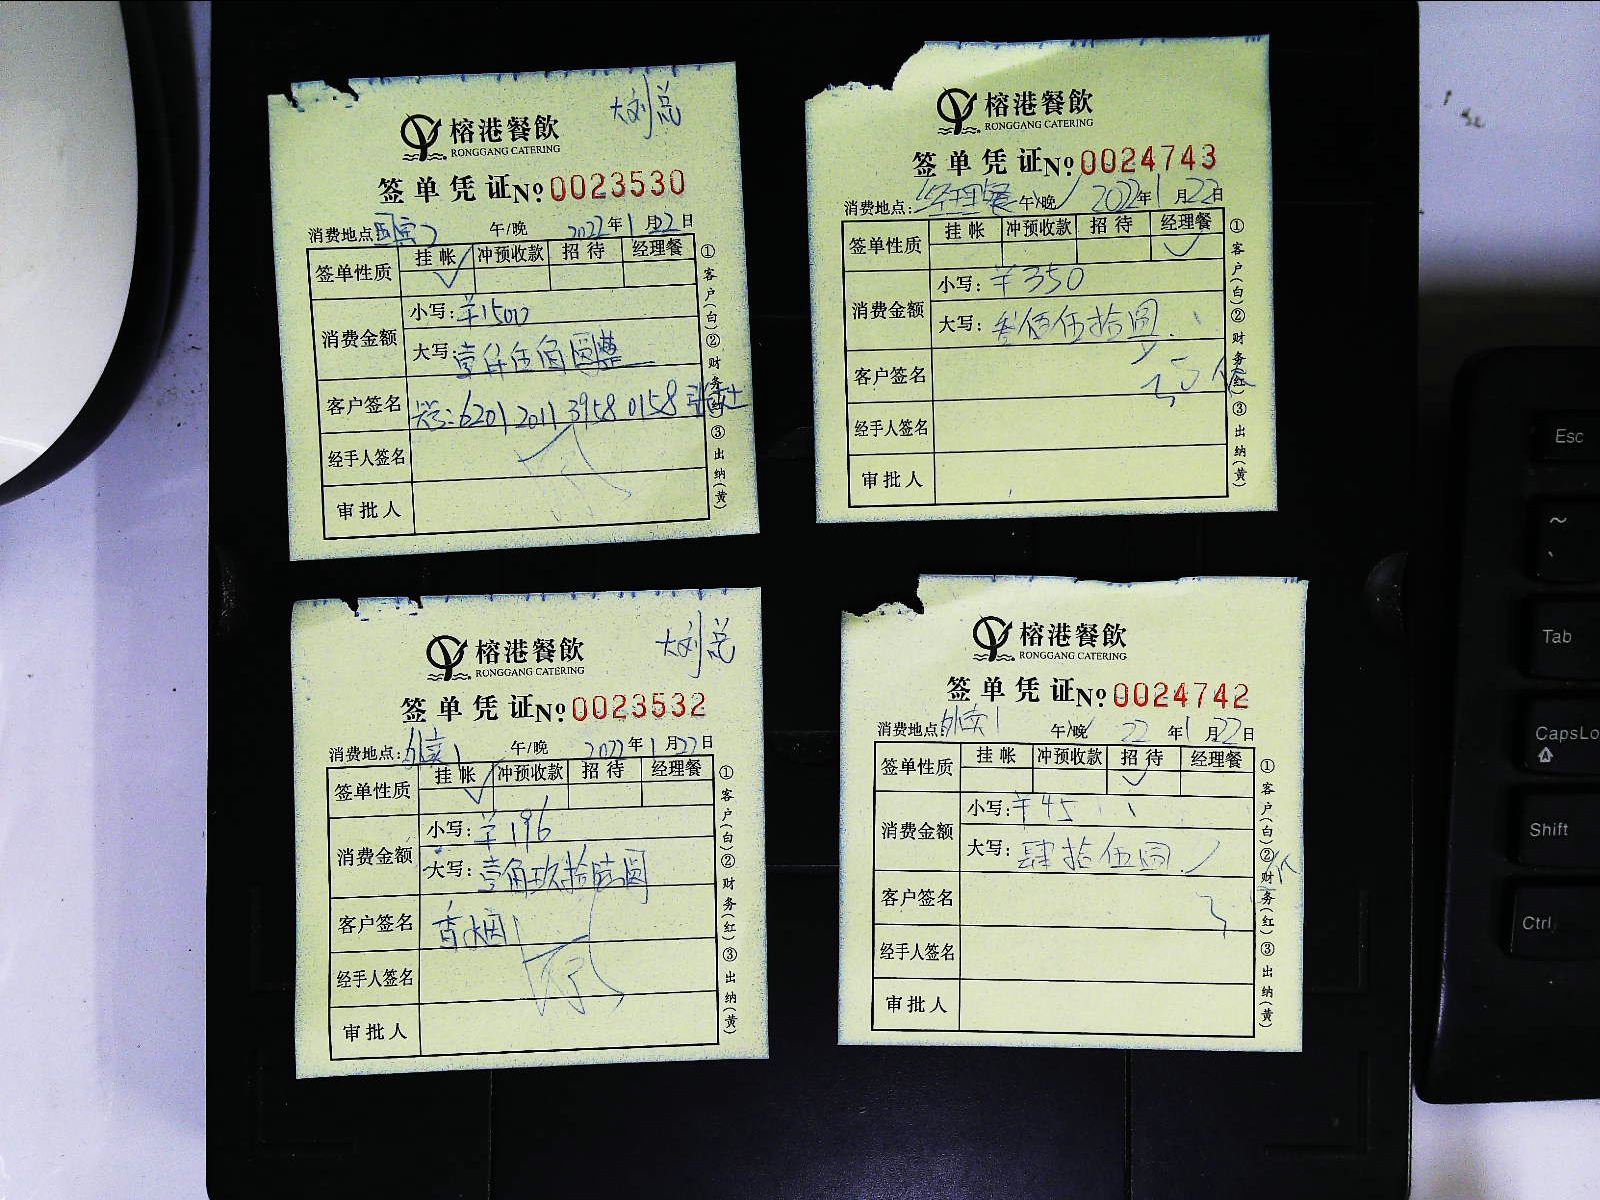 大刘总
榕港餐飲
RONGGANG CATERING
签单凭证 No 0023530
消费地点 午/晚 2022年1月22日
签单性质 挂帐 冲预收款 招待 经理餐
✓
消费金额 小写:¥1500
大写 壹仟伍佰圆整
客户签名 6201 2011 3958 0158
经手人签名
审批人
①客户(白)②财务(红)③出纳(黄)
榕港餐飲
RONGGANG CATERING
签单凭证 No 0024743
消费地点:经理餐 午/晚 2022年1月22日
签单性质 挂帐 冲预收款 招待 经理餐
✓
消费金额 小写:¥350
大写:叁佰伍拾圆
客户签名
经手人签名
审批人
①客户(白)②财务(红)③出纳(黄)
大刘总
榕港餐飲
RONGGANG CATERING
签单凭证 No 0023532
消费地点:外宾1 午/晚 2022年1月22日
签单性质 挂帐 冲预收款 招待 经理餐
✓
消费金额 小写:¥196
大写:壹佰玖拾陆圆
客户签名 香烟1
经手人签名
审批人
①客户(白)②财务(红)③出纳(黄)
榕港餐飲
RONGGANG CATERING
签单凭证 No 0024742
消费地点:外宾1 午/晚 22年1月22日
签单性质 挂帐 冲预收款 招待 经理餐
✓
消费金额 小写:¥45
大写:肆拾伍圆
客户签名
经手人签名
审批人
①客户(白)②财务(红)③出纳(黄)
Esc
~
Tab
CapsLo
Shift
Ctrl